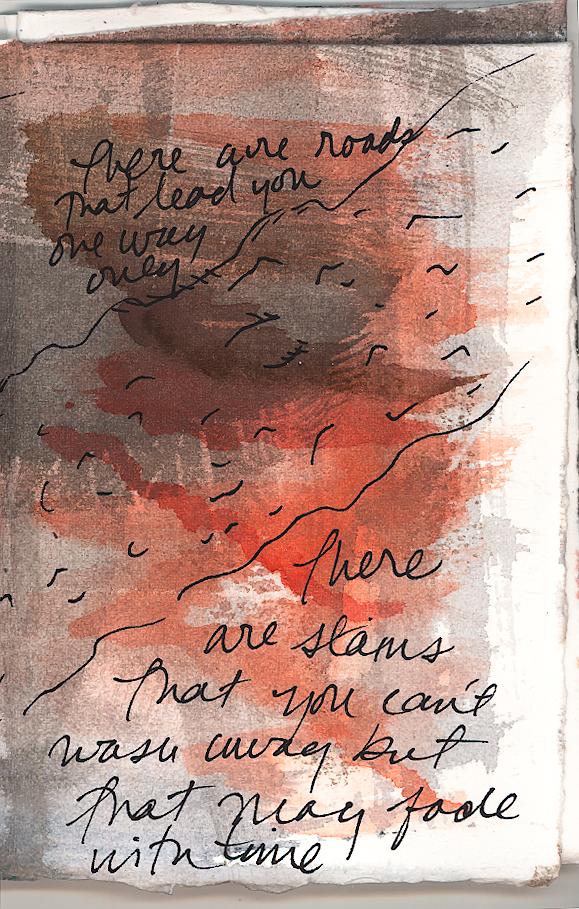 There are roads
that lead you
one way
only
There
are stains
that you can't
wash away but
that may fade
with time